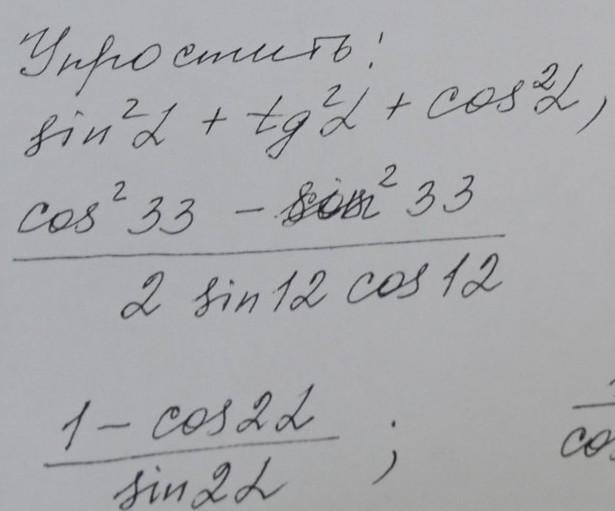 Упростить:
sin²α + tg²α + cos²α,
cos²33 - sin²33
2 sin12 cos12
1 - cos2α
sin2α ;
cos